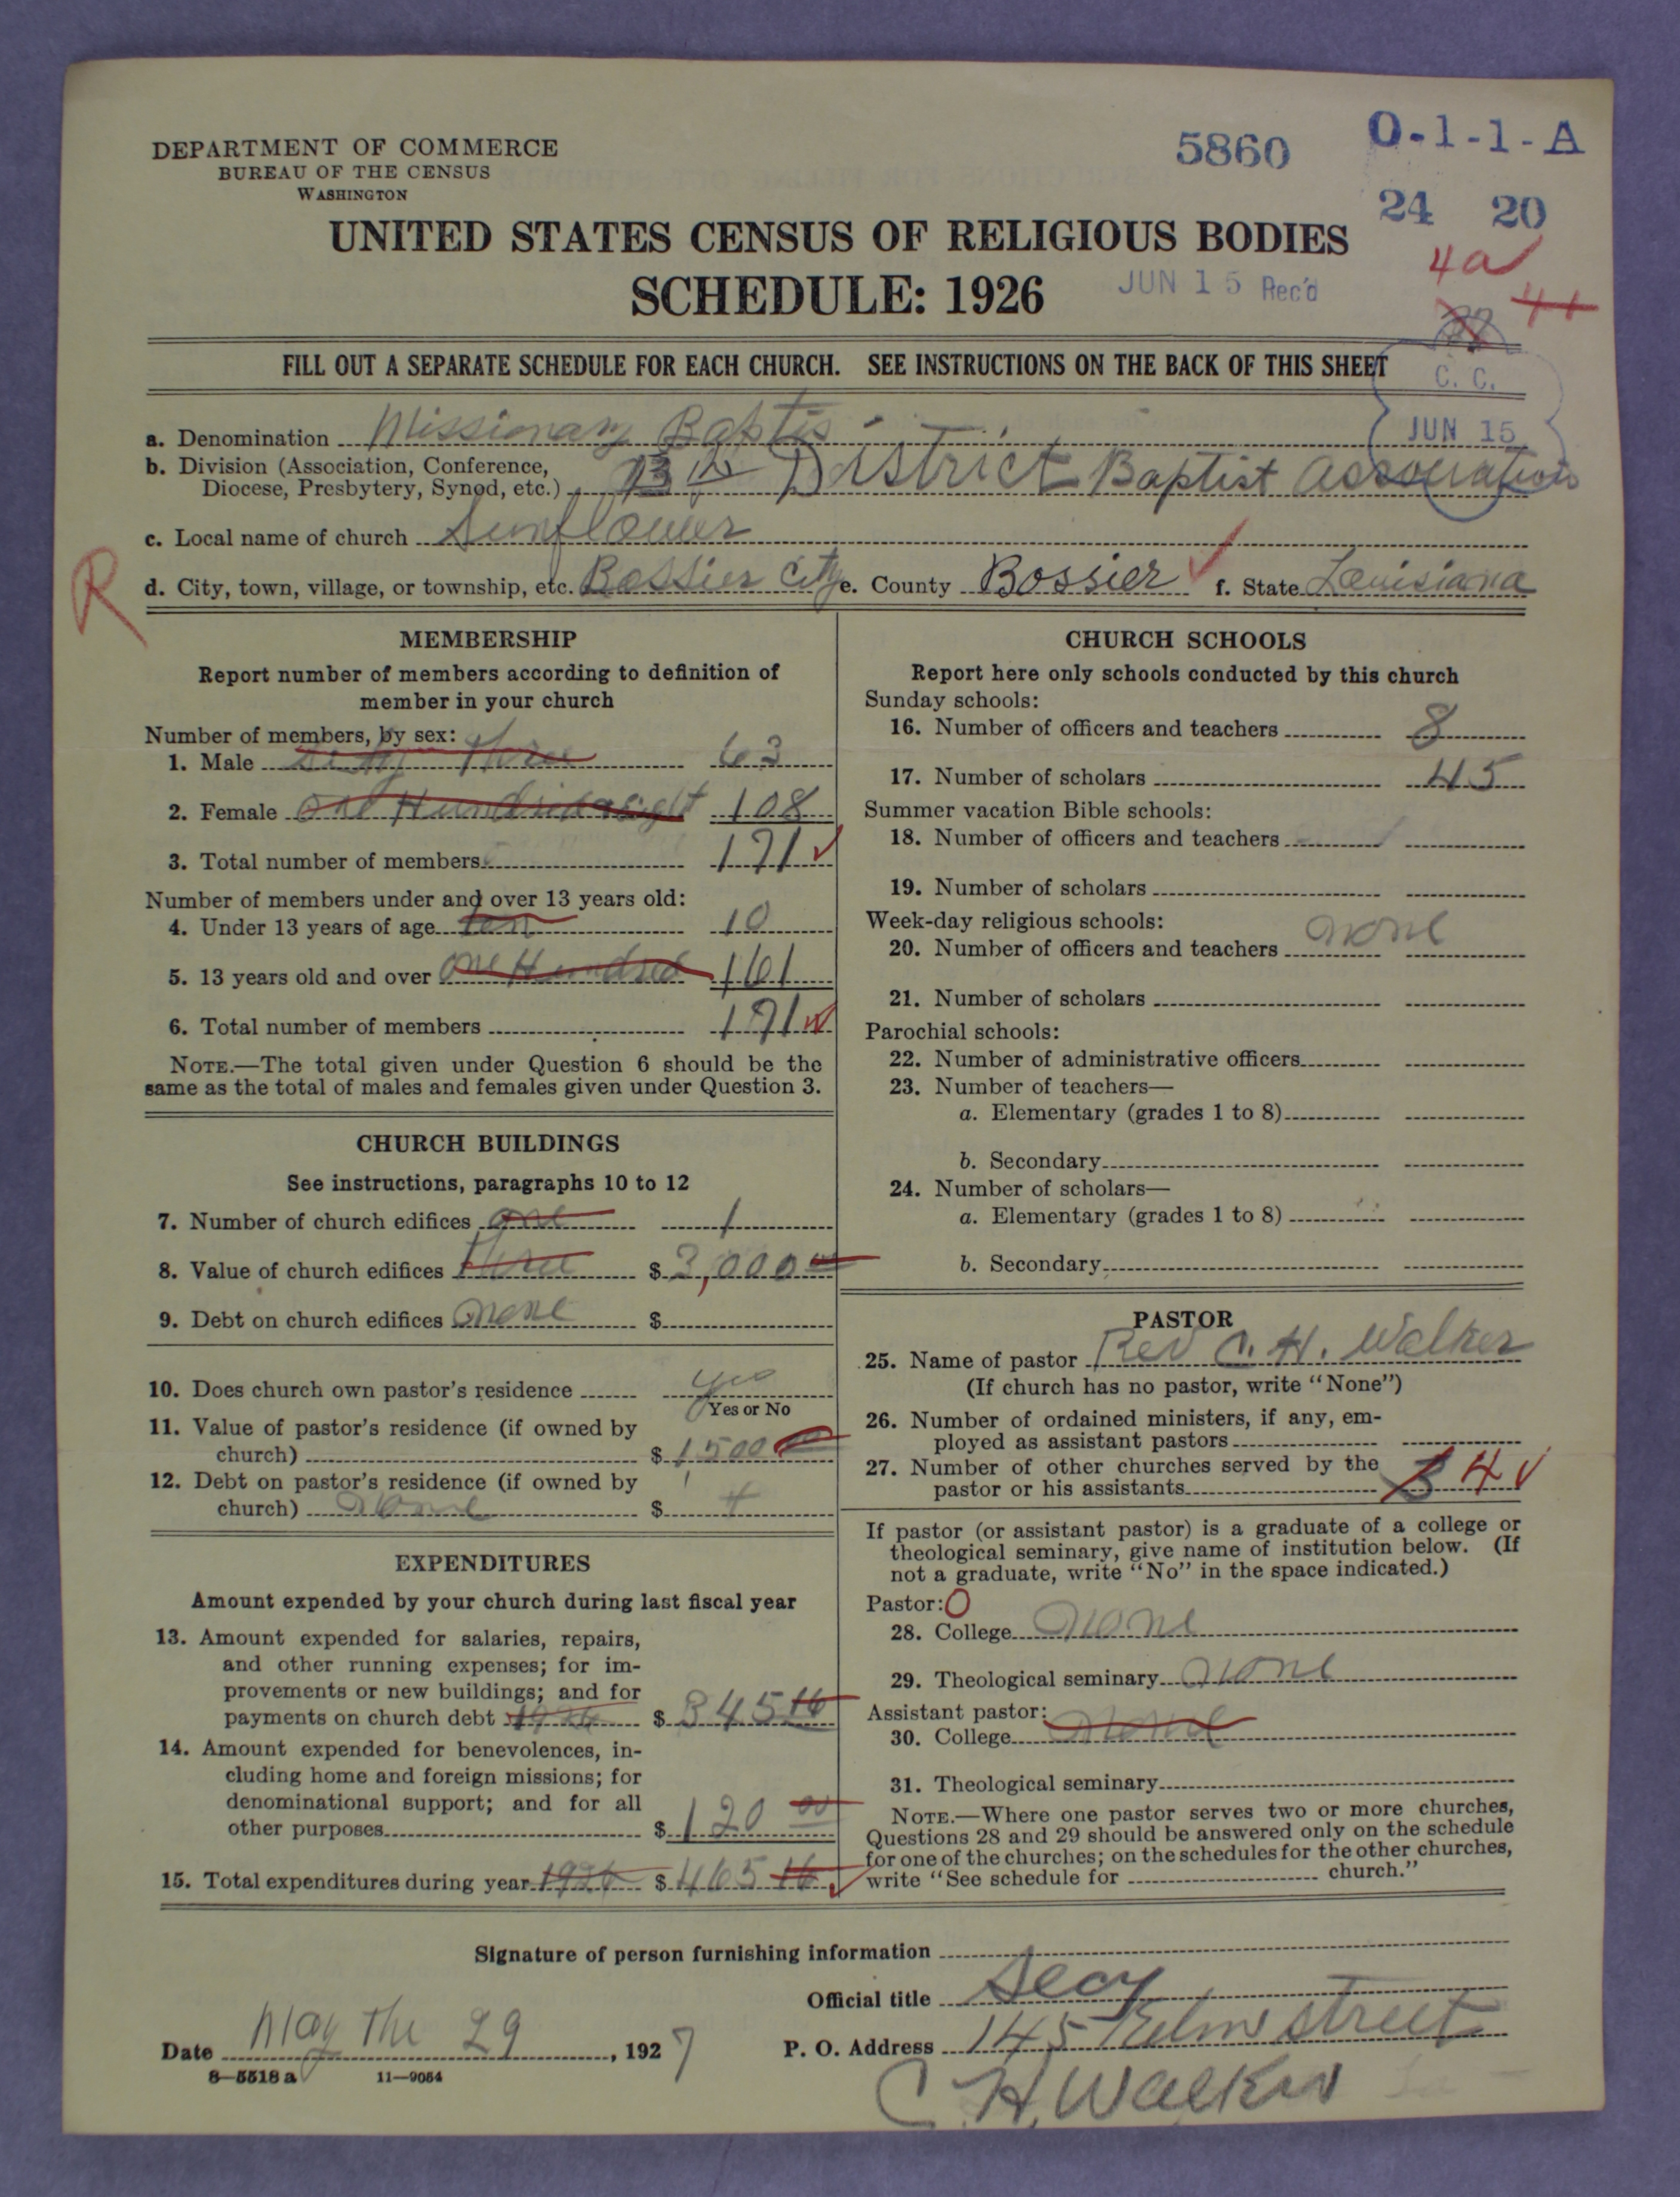 DEPARTMENT OF COMMERCE
BUREAU OF THE CENSUS
WASHINGTON
5860
O-1-1-A
24 20
UNITED STATES CENSUS OF RELIGIOUS BODIES
4a
SCHEDULE: 1926
JUN 15 Rec'd
FILL OUT A SEPARATE SCHEDULE FOR EACH CHURCH. SEE INSTRUCTIONS ON THE BACK OF THIS SHEET
C. C.
JUN 15
a. Denomination Missionary Baptis
b. Division (Association, Conference,
Diocese, Presbytery, Synod, etc.) 13th District Baptist Association
c. Local name of church Sunflower
R
d. City, town, village, or township, etc. Bossier City e. County Bossier f. State Louisiana
MEMBERSHIP
Report number of members according to definition of
member in your church
Number of members, by sex:
1. Male sixty three 63
2. Female one Hundred eight 108
3. Total number of members 171
Number of members under and over 13 years old:
4. Under 13 years of age ten 10
5. 13 years old and over one Hundred 161
6. Total number of members 171
NOTE.—The total given under Question 6 should be the
same as the total of males and females given under Question 3.
CHURCH BUILDINGS
See instructions, paragraphs 10 to 12
7. Number of church edifices one 1
8. Value of church edifices three $ 3,000 00
9. Debt on church edifices none $
10. Does church own pastor's residence yes
Yes or No
11. Value of pastor's residence (if owned by
church) $ 1500 00
12. Debt on pastor's residence (if owned by
church) none $
EXPENDITURES
Amount expended by your church during last fiscal year
13. Amount expended for salaries, repairs,
and other running expenses; for im-
provements or new buildings; and for
payments on church debt 1926 $ 345 16
14. Amount expended for benevolences, in-
cluding home and foreign missions; for
denominational support; and for all
other purposes $ 120 00
15. Total expenditures during year 1926 $ 465 16
CHURCH SCHOOLS
Report here only schools conducted by this church
Sunday schools:
16. Number of officers and teachers 8
17. Number of scholars 45
Summer vacation Bible schools:
18. Number of officers and teachers
19. Number of scholars
Week-day religious schools:
20. Number of officers and teachers none
21. Number of scholars
Parochial schools:
22. Number of administrative officers
23. Number of teachers—
a. Elementary (grades 1 to 8)
b. Secondary
24. Number of scholars—
a. Elementary (grades 1 to 8)
b. Secondary
PASTOR
25. Name of pastor Rev C. H. Walker
(If church has no pastor, write "None")
26. Number of ordained ministers, if any, em-
ployed as assistant pastors
27. Number of other churches served by the
pastor or his assistants 4
If pastor (or assistant pastor) is a graduate of a college or
theological seminary, give name of institution below. (If
not a graduate, write "No" in the space indicated.)
Pastor: O
28. College none
29. Theological seminary none
Assistant pastor:
30. College none
31. Theological seminary
NOTE.—Where one pastor serves two or more churches,
Questions 28 and 29 should be answered only on the schedule
for one of the churches; on the schedules for the other churches,
write "See schedule for church."
Signature of person furnishing information
Official title Secy
Date May the 29, 1927
P. O. Address 145 Elm street
8—5518 a 11—9054
C. H. Walker